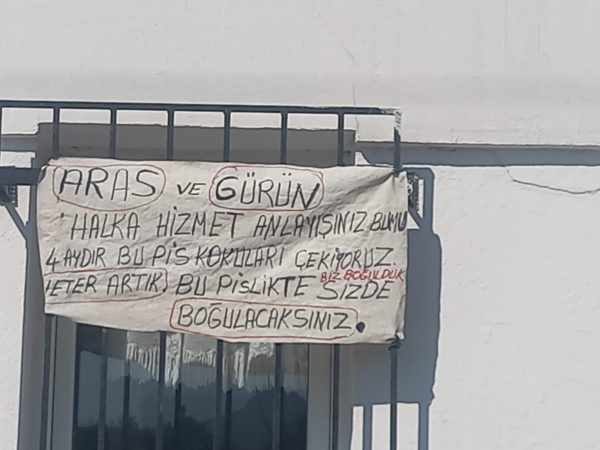 ARAS VE GÜRÜN
HALKA HİZMET ANLAYIŞINIZ BUMU
4 AYDIR BU PİS KOKULARI ÇEKİYORUZ.
YETER ARTIK BU PİSLİKTE BİZ BOĞULDUK SİZDE
BOĞULACAKSINIZ.